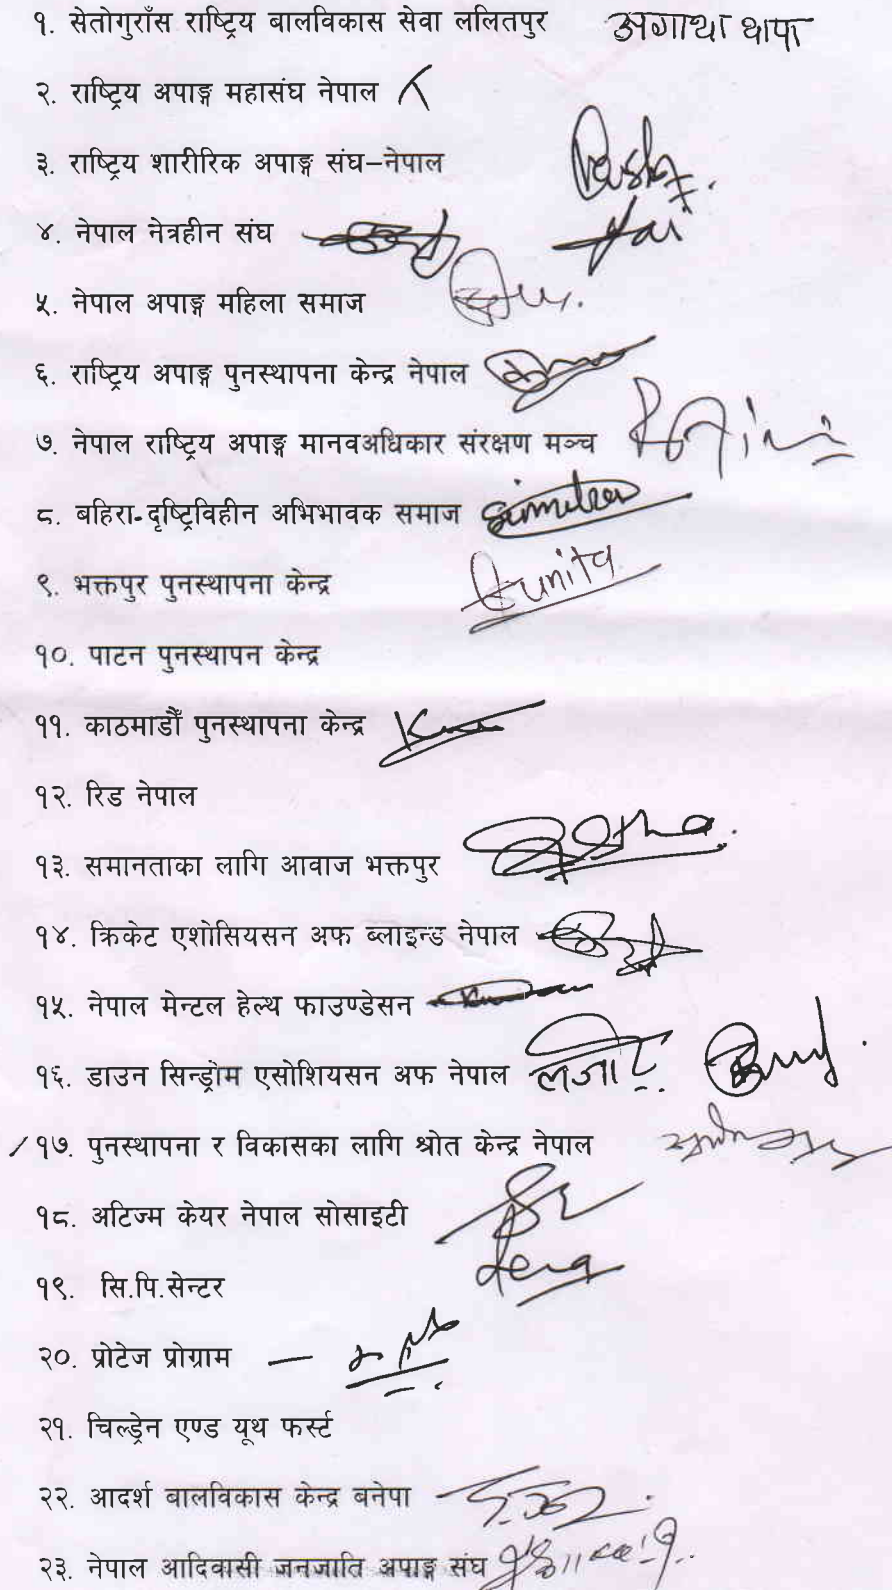 १. सेतोगुराँस राष्ट्रिय बालविकास सेवा ललितपुर अगाथा थापा
२. राष्ट्रिय अपाङ्ग महासंघ नेपाल
३. राष्ट्रिय शारीरिक अपाङ्ग संघ–नेपाल
४. नेपाल नेत्रहीन संघ
५. नेपाल अपाङ्ग महिला समाज
६. राष्ट्रिय अपाङ्ग पुनस्थापना केन्द्र नेपाल
७. नेपाल राष्ट्रिय अपाङ्ग मानवअधिकार संरक्षण मञ्च
८. बहिरा-दृष्ट्रिविहीन अभिभावक समाज
९. भक्तपुर पुनस्थापना केन्द्र Sunita
१०. पाटन पुनस्थापन केन्द्र
११. काठमाडौँ पुनस्थापना केन्द्र
१२. रिड नेपाल
१३. समानताका लागि आवाज भक्तपुर
१४. क्रिकेट एशोसियसन अफ ब्लाइन्ड नेपाल
१५. नेपाल मेन्टल हेल्थ फाउण्डेसन
१६. डाउन सिन्ड्रोम एसोशियसन अफ नेपाल
१७. पुनस्थापना र विकासका लागि श्रोत केन्द्र नेपाल
१८. अटिज्म केयर नेपाल सोसाइटी
१९. सि.पि.सेन्टर
२०. प्रोटेज प्रोग्राम
२१. चिल्ड्रेन एण्ड यूथ फर्स्ट
२२. आदर्श बालविकास केन्द्र बनेपा
२३. नेपाल आदिवासी जनजाति अपाङ्ग संघ